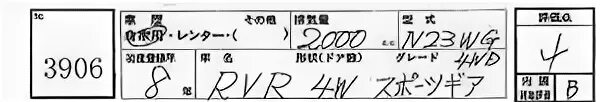 車歴 その他 排気量 型式 評価点
自家用・レンター・( ) 2000 c.c. N23WG 4
3906
初度登録年 車名 形状(ドア数) グレード 4WD
8 年 RVR 4W スポーツギア
内装 B